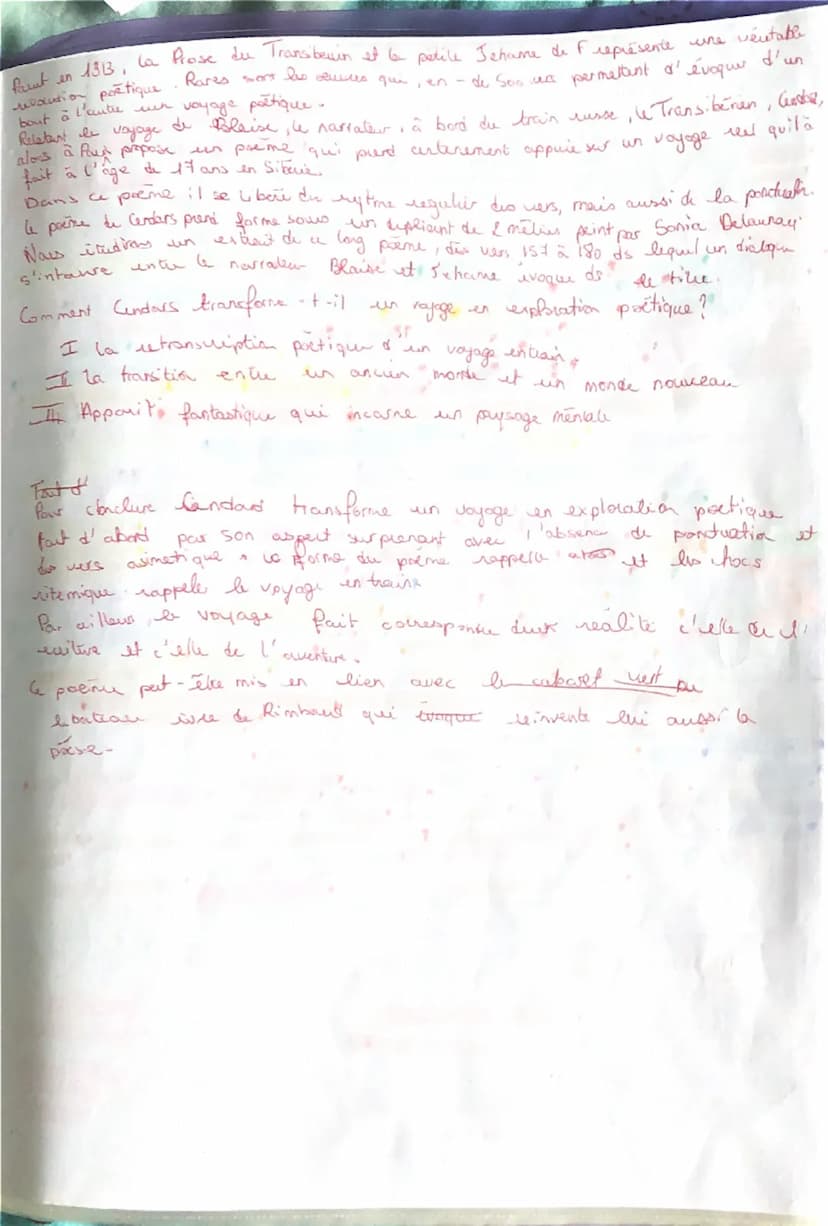 Parut en 1913, la Prose du Transibérien et la petite Jehanne de F représente une véritable
révolution poétique. Rares sont les œuvres qui, en - de 500 vers permettant d'évoquer d'un
bout à l'autre un voyage poétique.
Relatant le voyage de Blaise, le narrateur, à bord du train russe, le Transibérien, Cendrars,
alors à Paris propose un poème qui prend certainement appuie sur un voyage réel qu'il à
fait à l'âge de 17 ans en Sibérie.
Dans ce poème il se libère du rytme régulier des vers, mais aussi de la ponctuation.
Le poème de Cendars prend forme sous un dépliant de 2 mètres peint par Sonia Delaunay
Nous étudirons un extrait de ce long poème, des vers 157 à 180 ds lequel un dialogue
s'instaure entre le narrateur Blaise et Jehanne évoque ds le titre.
Comment Cendars transforme-t-il un voyage en exploration poétique ?
I la retranscription poétique d'un voyage en train.
II la transition entre un ancien monde et un monde nouveau
III Apparit° fantastique qui incarne un paysage mentale
Tout d'
Pour conclure Cendars transforme un voyage en exploration poétique
tout d'abord par son aspect surprenant avec l'absence de ponctuation et
des vers asimetrique. La forme du poème rappelle et les chocs
ritemique rappele le voyage en train
Par ailleurs, le voyage fait correspondre deux réalité c'elle de l'
écriture et c'elle de l'aventure.
Ce poème peut-être mis en lien avec le cabaret vert ou
le bateau ivre de Rimbaud qui évoque réinvente lui aussi la
poésie.